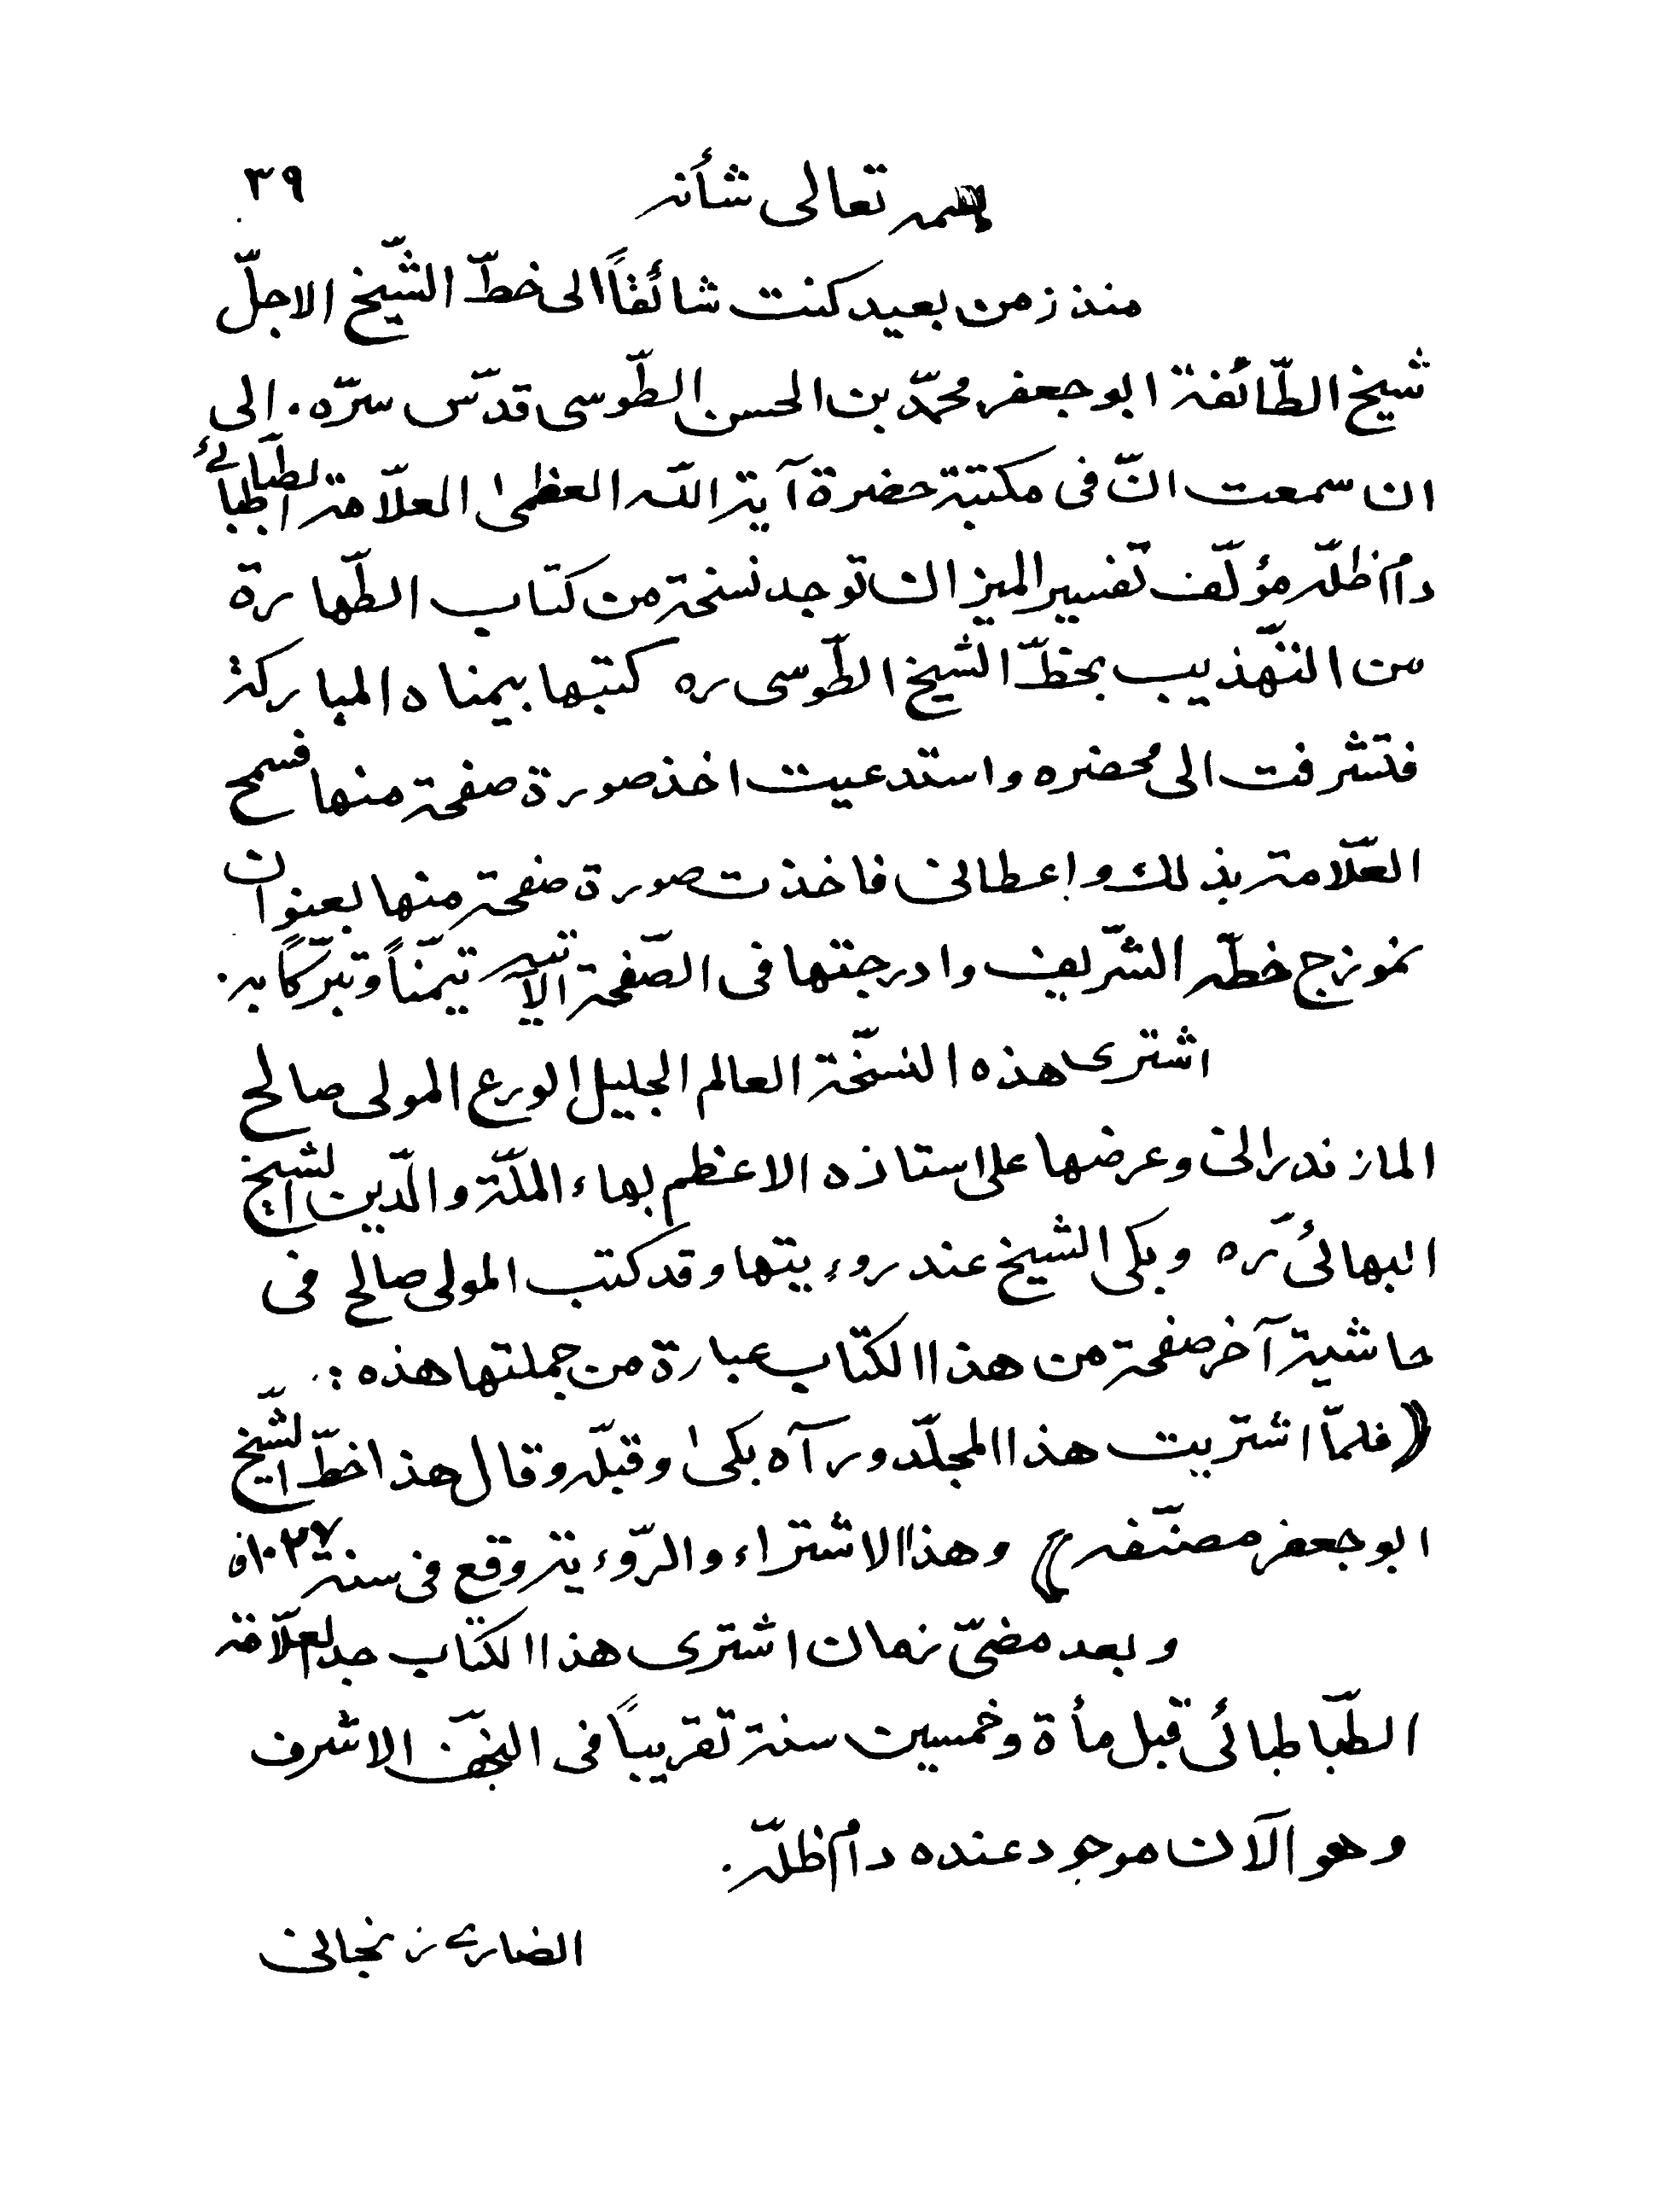 ٣٩
بسمه تعالى شأنه
منذ زمن بعيد كنت شائقاً الى خطّ الشّيخ الاجلّ
شيخ الطّائفة ابوجعفر محمّد بن الحسن الطّوسى قدّس سرّه . الى
ان سمعت انّ فى مكتبة حضرة آية اللّه العظمىٰ العلّامة الطّباطبائى
دام ظلّه مؤلّف تفسير الميزان توجد نسخة من كتاب الطّهارة
من التّهذيب بخطّ الشيخ الطّوسى ره كتبها بيمناه المباركة
فتشرفت الى محضره واستدعيت اخذ صورة صفحة منها فسمح
العلّامة بذلك واعطانى فاخذت صورة صفحة منها بعنوان
نموزج خطّه الشّريف وادرجتها فى الصّفحة الآتيه تيمّناً وتبرّكاً به .
اشترى هذه النسّخة العالم الجليل الورع المولى صالح
المازندرانى وعرضها على استاذه الاعظم بهاء الملّة والدّين الشيخ
البهائى ره وبكى الشيخ عند روءيتها وقد كتب المولى صالح فى
حاشية آخر صفحة من هذا الكتاب عبارة من جملتها هذه :
(( فلمّا اشتريت هذا المجلّد ورآه بكىٰ وقبّله وقال هذا خطّ الشّيخ
ابوجعفر مصنّفه )) وهذا الاشتراء والرّوءية وقع فى سنة ١٠٢٧ ق
وبعد مضىّ زمان اشترى هذا الكتاب جد العلّامة
الطّباطبائى قبل مأة وخمسين سنة تقريباً فى النجّف الاشرف
وهو الآن موجود عنده دام ظلّه .
انصارى زنجانى